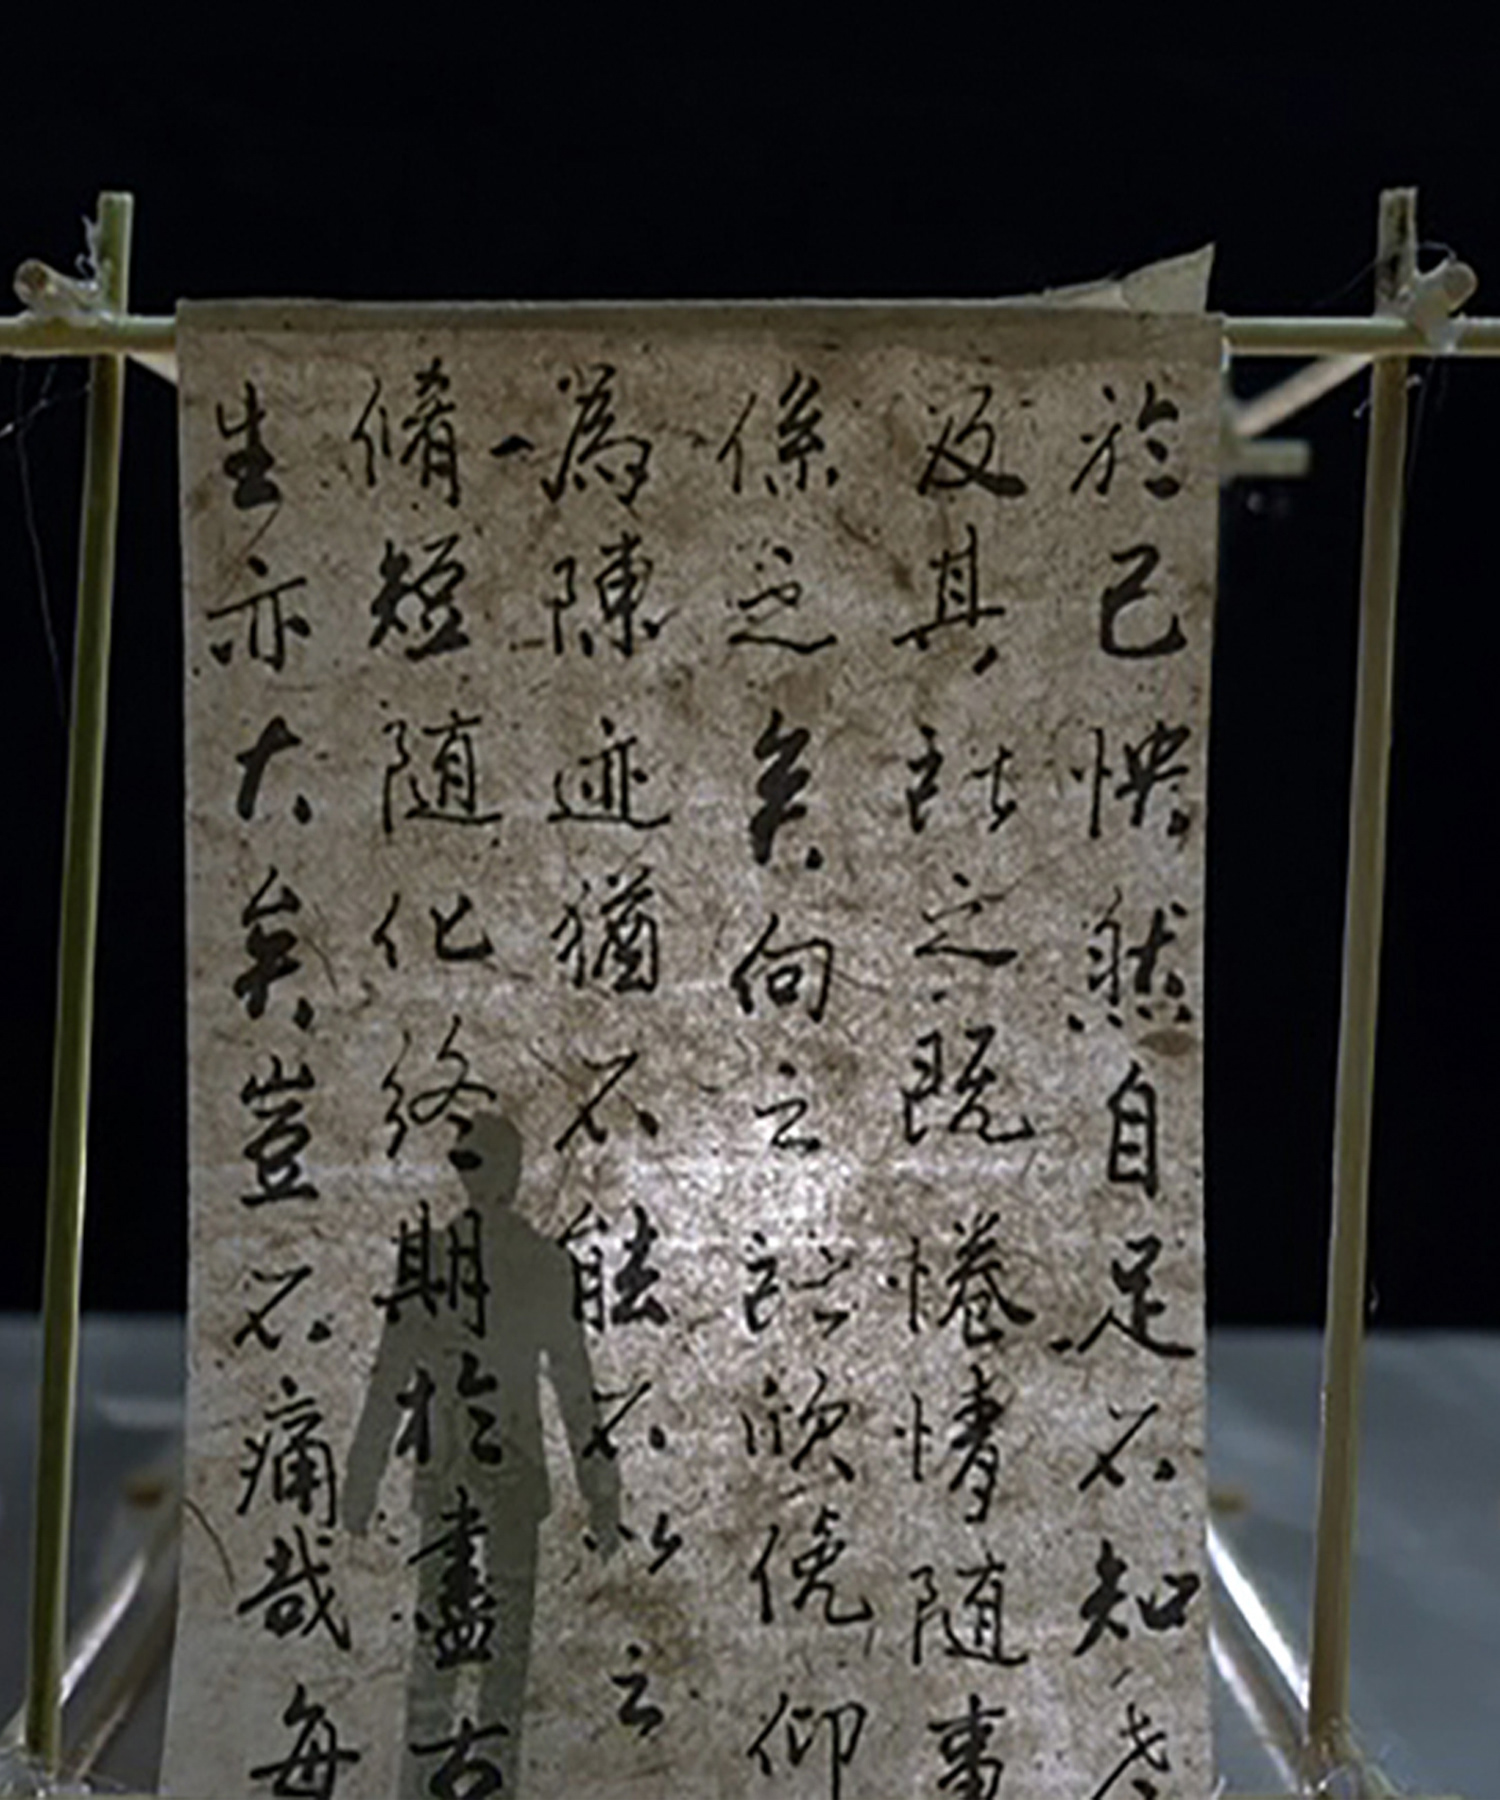 於己怏然自足不知老
及其所之既惓情随事
係之矣向之所欣俛仰
為陳迹猶不能不以之
脩短随化終期於盡古
生亦大矣豈不痛哉每